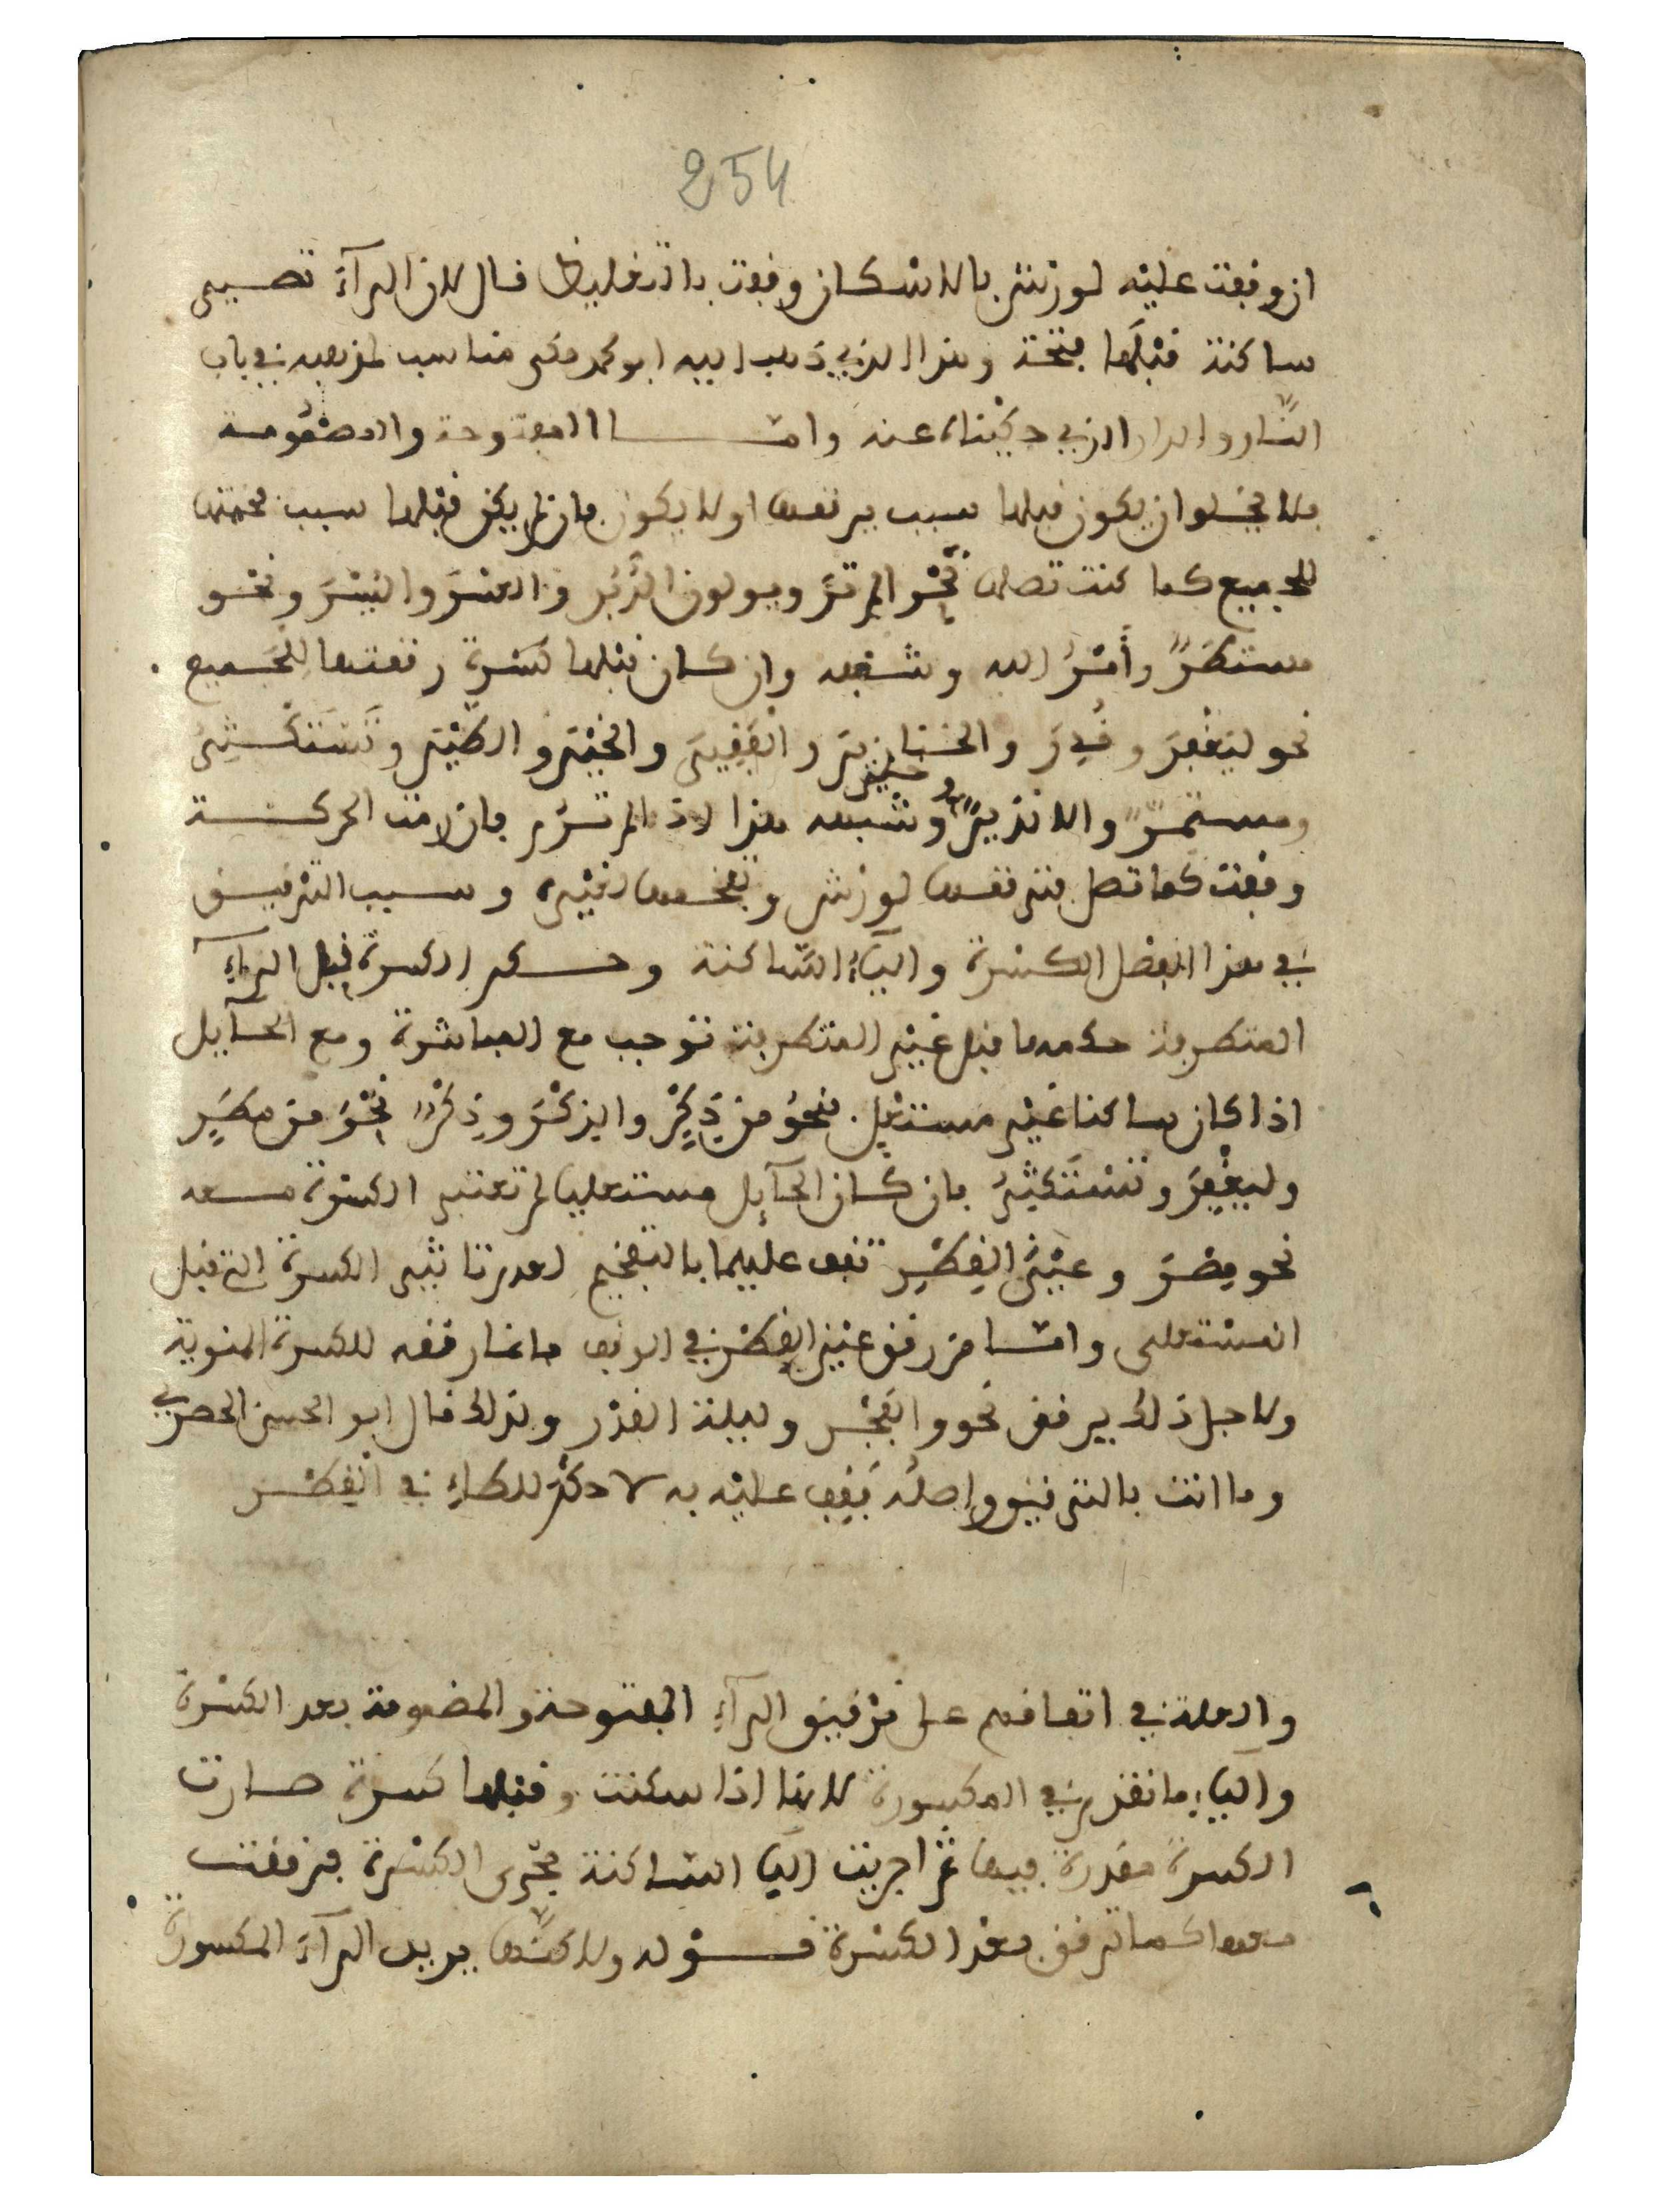 254
ان وقفت عليه لورش بالاسكان وقفت بالتغليظ قال لان الرآءَ تصيىر
ساكنة قبْلَها فتحة وهذا الذي ذهب اليه ابو محمد مكى مناسب لمذهبه في باب
النَّار والدار الذي حكيْناه عنه وامّا المفتوحة والمضمُومة
فلا يخلوا ان يكون قبلها سبب يرققها اولا يكون فان لم يكن قبلها سبب فخمتها
للجميع كما كنت تصلها نحْو الم ترَ ويولون الدُّبُر والعسْرَ واليُسْرَ ونحْو
مستطَرٌ وأمْرُ الله وشبهه وان كان قبلها كسْرة رققتها للجَميع
نحو ليَغْفِرَ وقُدِرَ والخنازيرَ والفَقِيرَ والخيْرَ والطيْرَ وتَسْتَكْثِرُ
ومستمرٌّ والا نذيرٌ وخبيرٌ وشبهه هذا اذا لم ترُم فان رمت الحركة
وقفت كما تصل فترققها لورش وتفخمها لغيْره وسبب الترقيق
في هذا الفصْل الكسْرة واليآءُ السَّاكنة وحكم الكسرة قبل الرآءِ
المتطرفة حكمها قبل غيْر المتطرفة توجب مع المباشرة ومع الحآيل
اذا كان ساكنا غيْر مستعْل. نحوُ من ذِكْرٍ والذكْرَ وذِكْرٌ نحْوَ من مطَرٍ
وليغْفِرَ وتسْتَكثِرُ فان كان الحآيِل مستعليا لم تعتبر الكسْرة معه
نحو مِصْرَ وعيْنَ القِطْرِ تقف عليهما بالتفخيم لعدم تاثير الكسرة التي قبل
المسْتعلى وامّا من رقق عيْن القِطْر في الوقف فانما رققه للكسرة المنوية
ولاجل ذلك يرقق نحو والفَجْر وليلة القدْر ولذلك قال ابو الحسن الحصري
وما انت بالترقيق واصلُه فقِف عليْه به لا حكْمَ للطاءِ في القِطْر
والعلة في اتفاقهم على ترْقيق الرآءِ المفتوحة والمضمومة بعد الكسْرة
واليآءِ ما تقدم في المكسورة لانها اذا سكنت وقبلها كسرة صارت
الكسرة مقدرة فيها ثم اجريت اليآ السّاكنة مجْرى الكسْرة فرققت
معها كما ترقق معَ الكسْرة قوْله ولاكنَّها يريد الرآءَ المكسورة